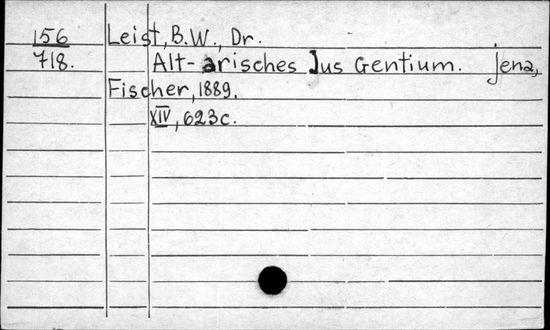 156 Leist, B.W., Dr.
718. Alt-arisches Jus Gentium. Jena,
Fischer, 1889.
XIV, 623c.